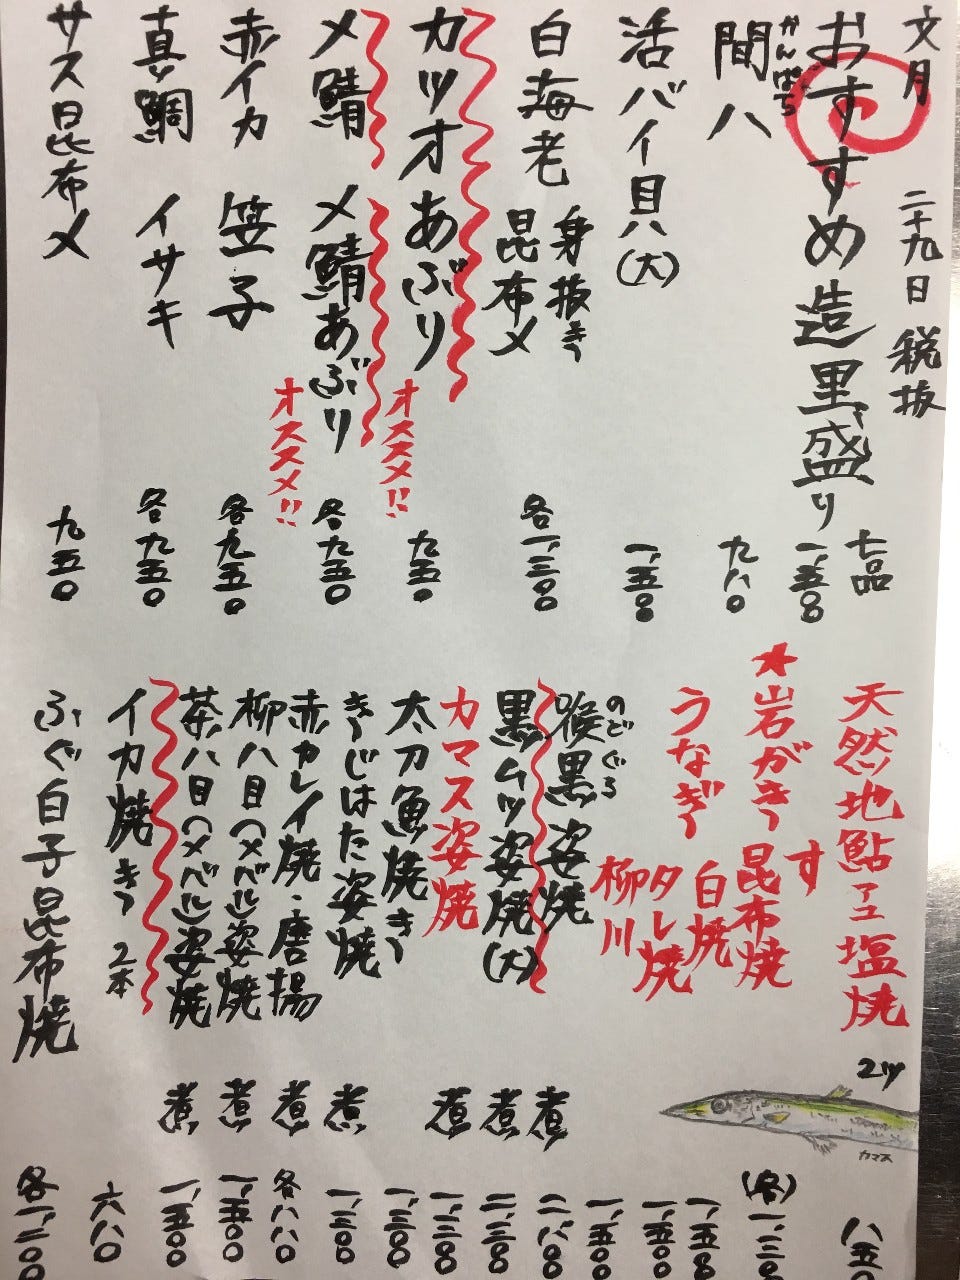 文月 二十九日 税抜
おすすめ造里盛り 七品 一、五〇〇
かんぱち
間八 九八〇
活バイ貝(大) 一、五〇〇
白海老 身抜き 昆布〆 各一、三〇〇
カツオあぶり オススメ!! 九五〇
〆鯖 〆鯖あぶり オススメ!! 各九五〇
赤イカ 笠子 各九五〇
真鯛 イサキ 各九五〇
サス昆布〆 九五〇
天然地鮎アユ塩焼 2ツ 八五〇
カマス
★岩がき す 昆布焼 (各)一、三〇〇
うなぎ 白焼 一、五五〇
タレ焼 一、五五〇
柳川 一、五〇〇
のどぐろ
喉黒姿焼 煮 二、八〇〇
黒ムツ姿焼(大) 煮 二、三〇〇
カマス姿焼 煮 一、三〇〇
太刀魚焼き 一、三〇〇
きじはた姿焼 煮 一、三〇〇
赤カレイ焼・唐揚 煮 各八八〇
柳八目(メバル)姿焼 煮 一、五〇〇
茶八目(メバル)姿焼 煮 一、五〇〇
イカ焼き 2本 六八〇
ふぐ白子昆布焼 各一、二〇〇